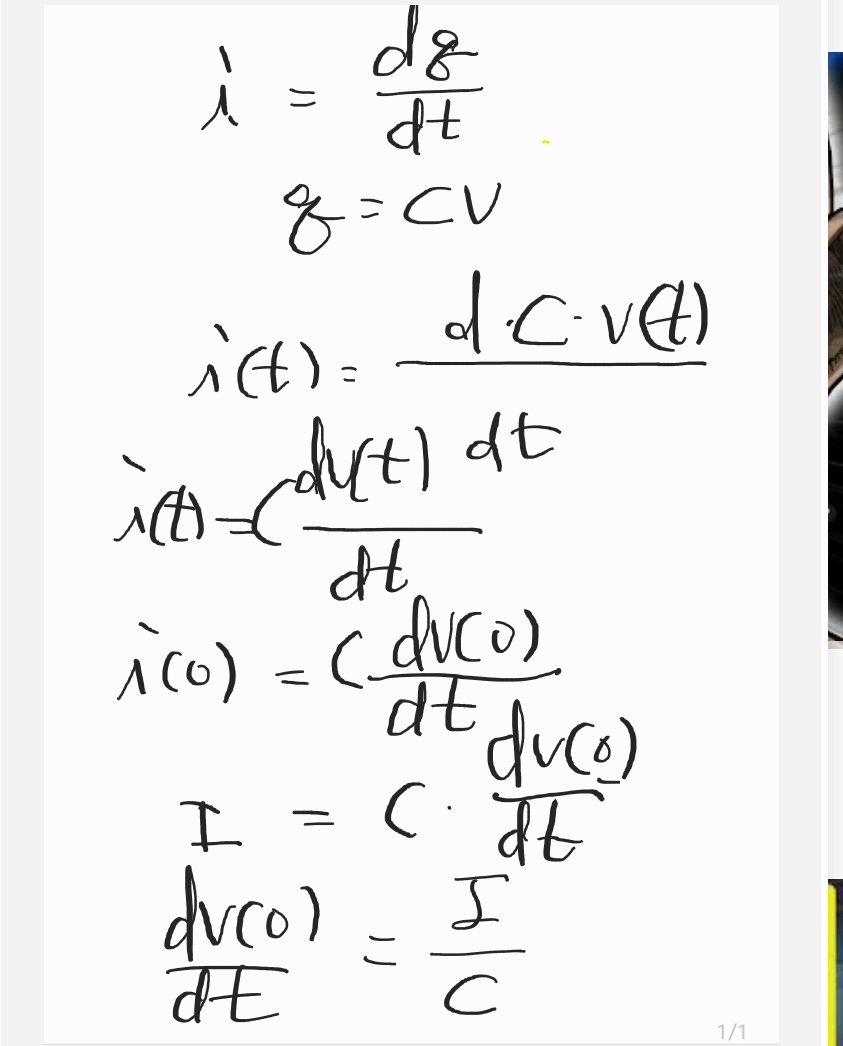 i = dq/dt
q = CV
i(t) = d·C·v(t)/dt
i(t) = C dv(t)/dt
i(0) = C dv(0)/dt
I = C · dv(0)/dt
dv(0)/dt = I/C
1/1